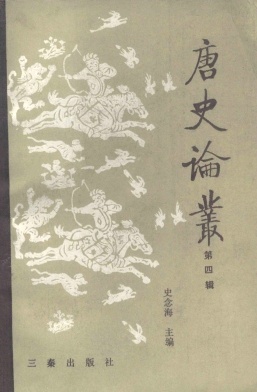 唐史論叢
第四辑
史念海 主编
三秦出版社